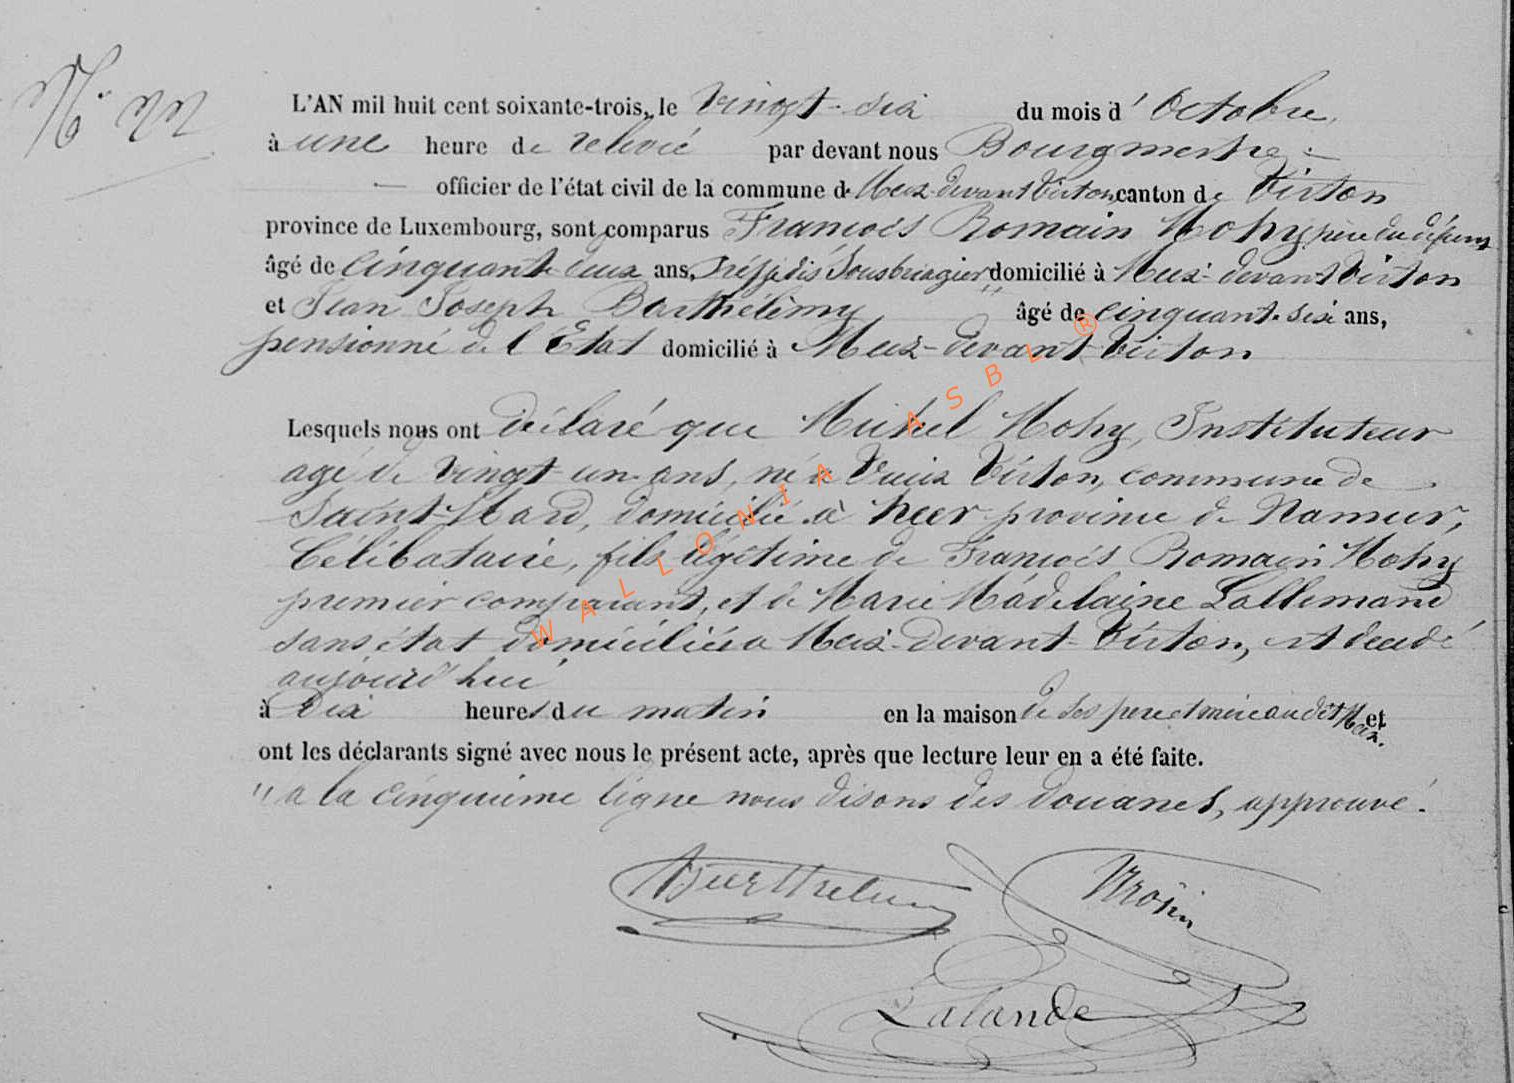 N.° 22
L'AN mil huit cent soixante-trois, le vingt-six du mois d' Octobre,
à une heure de relevée par devant nous Bourgmestre
officier de l'état civil de la commune de Meix-devant Virton, canton de Virton
province de Luxembourg, sont comparus François Romain Mohy père du défunt
âgé de cinquante deux ans, sousbrigadier domicilié à Meix-devant Virton
et Jean Joseph Barthélémy âgé de cinquante six ans,
pensionné de l'État domicilié à Meix-devant-Virton
Lesquels nous ont déclaré que Michel Mohy, Instituteur
agé de vingt un ans, né à Vieux Virton, commune de
Saint-Mard, domicilié à heer province de Namur,
Célibataire, fils légitime de François Romain Mohy
premier comparant, et de Marie Madelaine Lallemand
sans état domiciliés a Meix-Devant-Virton, est decédé
aujourd'hui
à Dix heures du matin en la maison de ses pere et mère audit Meix. et
ont les déclarants signé avec nous le présent acte, après que lecture leur en a été faite.
" a la cinquième ligne nous disons des douanes, approuvé.
Barthelemy
Lalande
WALLONIA ASBL ®